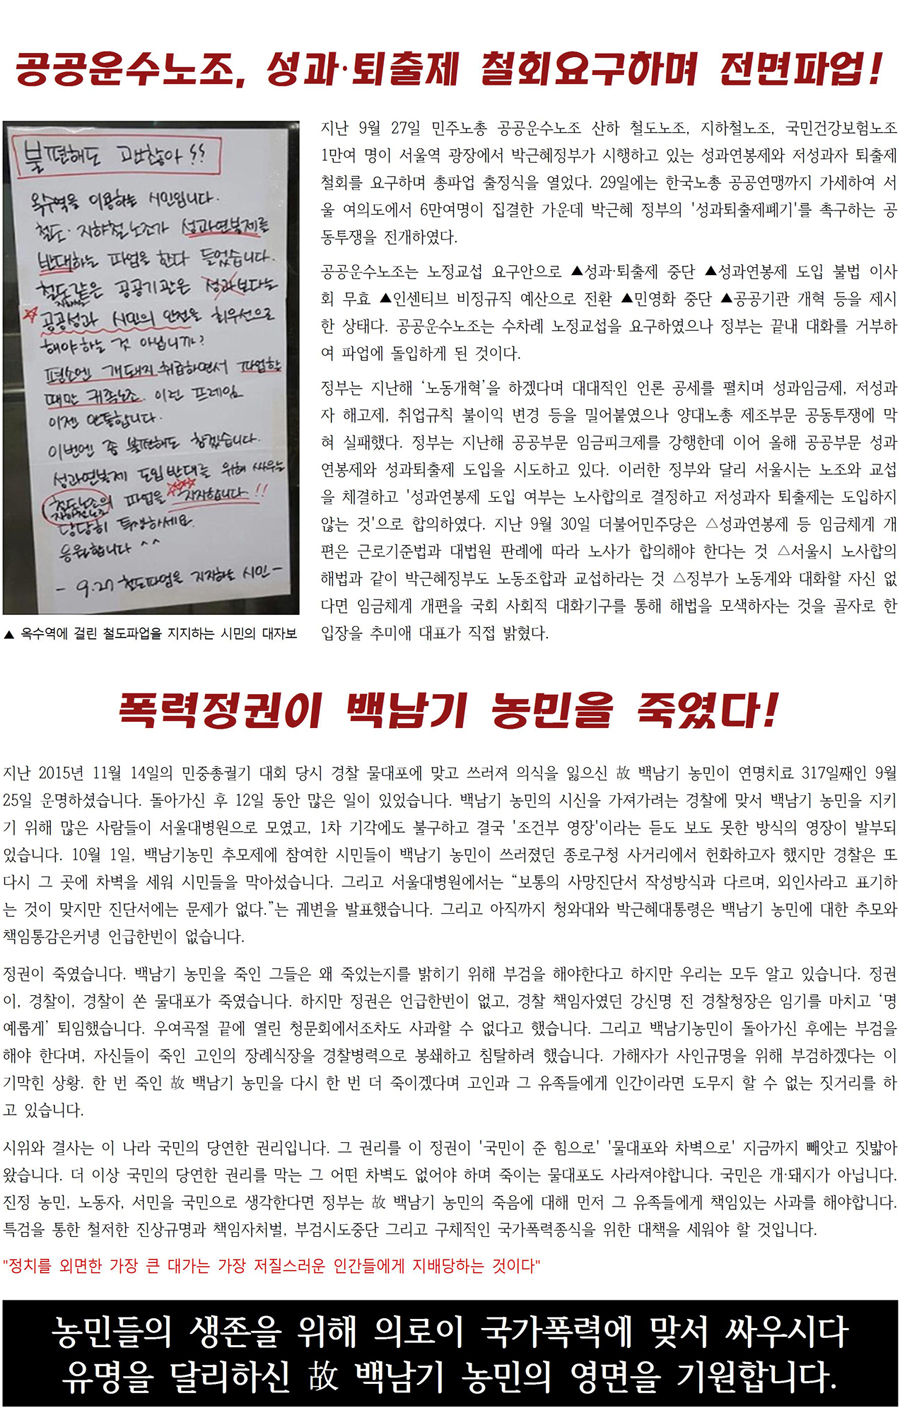 공공운수노조, 성과·퇴출제 철회요구하며 전면파업!
불편해도 괜찮아!!
옥수역을 이용하는 시민입니다.
철도·지하철노조가 성과연봉제를
반대하는 파업을 한다 들었습니다.
철도같은 공공기관은 성과보다는
지하철
공공성과 시민의 안전을 최우선으로
해야하는 것 아닙니까?
평소엔 개돼지 취급하면서 파업할
때만 귀족노조 이런 프레임
이젠 안통합니다.
이번엔 좀 불편해도 참겠습니다.
성과연봉제 도입반대를 위해 싸우는
철도노조의 파업을 지지합니다!!
지하철노조
당당히 투쟁하세요.
응원합니다 ^^
- 9.27 철도파업을 지지하는 시민 -
▲ 옥수역에 걸린 철도파업을 지지하는 시민의 대자보
지난 9월 27일 민주노총 공공운수노조 산하 철도노조, 지하철노조, 국민건강보험노조
1만여 명이 서울역 광장에서 박근혜정부가 시행하고 있는 성과연봉제와 저성과자 퇴출제
철회를 요구하며 총파업 출정식을 열었다. 29일에는 한국노총 공공연맹까지 가세하여 서
울 여의도에서 6만여명이 집결한 가운데 박근혜 정부의 '성과퇴출제폐기'를 촉구하는 공
동투쟁을 전개하였다.
공공운수노조는 노정교섭 요구안으로 ▲성과·퇴출제 중단 ▲성과연봉제 도입 불법 이사
회 무효 ▲인센티브 비정규직 예산으로 전환 ▲민영화 중단 ▲공공기관 개혁 등을 제시
한 상태다. 공공운수노조는 수차례 노정교섭을 요구하였으나 정부는 끝내 대화를 거부하
여 파업에 돌입하게 된 것이다.
정부는 지난해 ‘노동개혁’을 하겠다며 대대적인 언론 공세를 펼치며 성과임금제, 저성과
자 해고제, 취업규칙 불이익 변경 등을 밀어붙였으나 양대노총 제조부문 공동투쟁에 막
혀 실패했다. 정부는 지난해 공공부문 임금피크제를 강행한데 이어 올해 공공부문 성과
연봉제와 성과퇴출제 도입을 시도하고 있다. 이러한 정부와 달리 서울시는 노조와 교섭
을 체결하고 '성과연봉제 도입 여부는 노사합의로 결정하고 저성과자 퇴출제는 도입하지
않는 것'으로 합의하였다. 지난 9월 30일 더불어민주당은 △성과연봉제 등 임금체계 개
편은 근로기준법과 대법원 판례에 따라 노사가 합의해야 한다는 것 △서울시 노사합의
해법과 같이 박근혜정부도 노동조합과 교섭하라는 것 △정부가 노동계와 대화할 자신 없
다면 임금체계 개편을 국회 사회적 대화기구를 통해 해법을 모색하자는 것을 골자로 한
입장을 추미애 대표가 직접 밝혔다.
폭력정권이 백남기 농민을 죽였다!
지난 2015년 11월 14일의 민중총궐기 대회 당시 경찰 물대포에 맞고 쓰러져 의식을 잃으신 故 백남기 농민이 연명치료 317일째인 9월
25일 운명하셨습니다. 돌아가신 후 12일 동안 많은 일이 있었습니다. 백남기 농민의 시신을 가져가려는 경찰에 맞서 백남기 농민을 지키
기 위해 많은 사람들이 서울대병원으로 모였고, 1차 기각에도 불구하고 결국 '조건부 영장'이라는 듣도 보도 못한 방식의 영장이 발부되
었습니다. 10월 1일, 백남기농민 추모제에 참여한 시민들이 백남기 농민이 쓰러졌던 종로구청 사거리에서 헌화하고자 했지만 경찰은 또
다시 그 곳에 차벽을 세워 시민들을 막아섰습니다. 그리고 서울대병원에서는 “보통의 사망진단서 작성방식과 다르며, 외인사라고 표기하
는 것이 맞지만 진단서에는 문제가 없다.”는 궤변을 발표했습니다. 그리고 아직까지 청와대와 박근혜대통령은 백남기 농민에 대한 추모와
책임통감은커녕 언급한번이 없습니다.
정권이 죽였습니다. 백남기 농민을 죽인 그들은 왜 죽었는지를 밝히기 위해 부검을 해야한다고 하지만 우리는 모두 알고 있습니다. 정권
이, 경찰이, 경찰이 쏜 물대포가 죽였습니다. 하지만 정권은 언급한번이 없고, 경찰 책임자였던 강신명 전 경찰청장은 임기를 마치고 ‘명
예롭게’ 퇴임했습니다. 우여곡절 끝에 열린 청문회에서조차도 사과할 수 없다고 했습니다. 그리고 백남기농민이 돌아가신 후에는 부검을
해야 한다며, 자신들이 죽인 고인의 장례식장을 경찰병력으로 봉쇄하고 침탈하려 했습니다. 가해자가 사인규명을 위해 부검하겠다는 이
기막힌 상황. 한 번 죽인 故 백남기 농민을 다시 한 번 더 죽이겠다며 고인과 그 유족들에게 인간이라면 도무지 할 수 없는 짓거리를 하
고 있습니다.
시위와 결사는 이 나라 국민의 당연한 권리입니다. 그 권리를 이 정권이 '국민이 준 힘으로' '물대포와 차벽으로' 지금까지 빼앗고 짓밟아
왔습니다. 더 이상 국민의 당연한 권리를 막는 그 어떤 차벽도 없어야 하며 죽이는 물대포도 사라져야합니다. 국민은 개·돼지가 아닙니다.
진정 농민, 노동자, 서민을 국민으로 생각한다면 정부는 故 백남기 농민의 죽음에 대해 먼저 그 유족들에게 책임있는 사과를 해야합니다.
특검을 통한 철저한 진상규명과 책임자처벌, 부검시도중단 그리고 구체적인 국가폭력종식을 위한 대책을 세워야 할 것입니다.
"정치를 외면한 가장 큰 대가는 가장 저질스러운 인간들에게 지배당하는 것이다"
농민들의 생존을 위해 의로이 국가폭력에 맞서 싸우시다
유명을 달리하신 故 백남기 농민의 영면을 기원합니다.